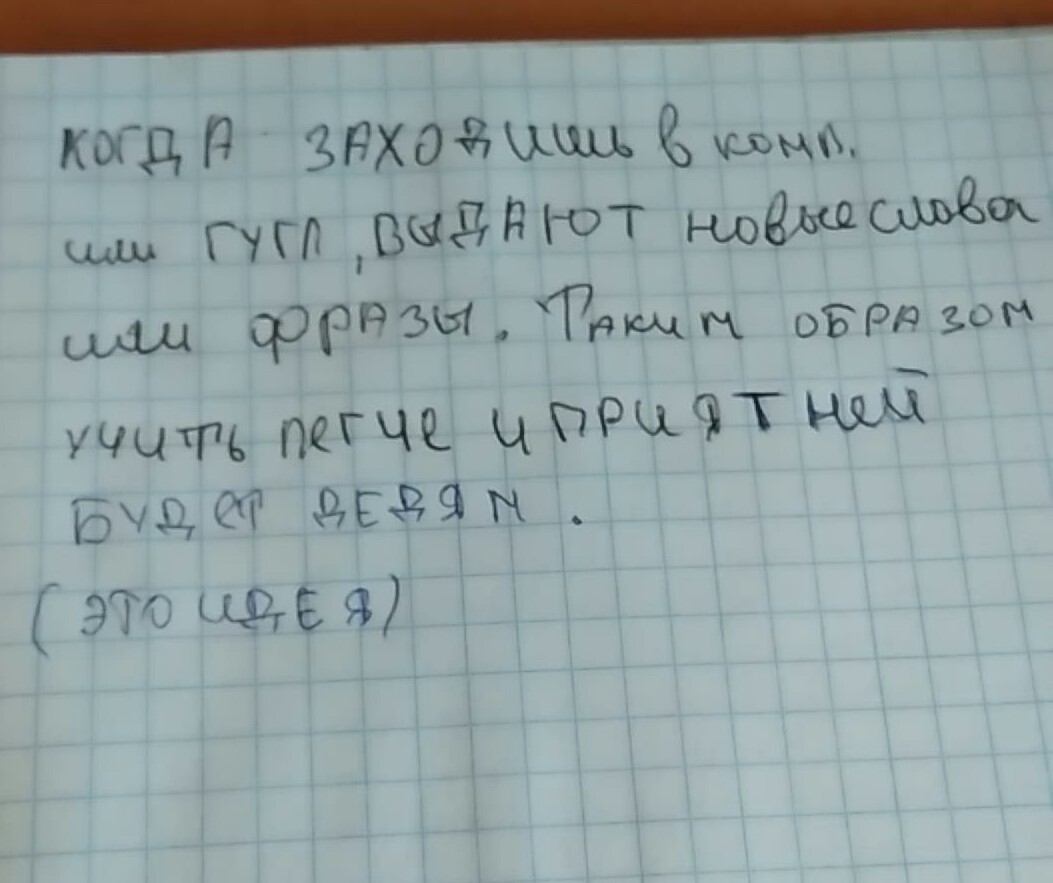 КОГДА ЗАХОДИШЬ В комп.
или ГУГЛ, ВЫДАЮТ новые слова
или ФРАЗЫ. ТАКИМ ОБРАЗОМ
УЧИТЬ ЛЕГЧЕ И ПРИЯТНЕЙ
БУДЕТ ДЕДЯМ.
(ЭТО ИДЕЯ)